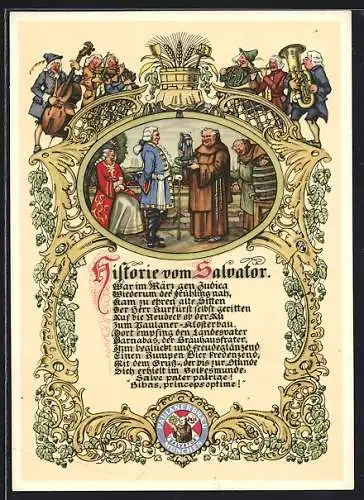 Historie vom Salvator.
War im März gen Judica
Wiederum der Frühling nah,
Kam zu ehren alte Sitten
Der Herr Kurfürst selbst geritten
Auf die Neudeck ob der Au
Zum Paulaner-Klosterbau.
Dort empfing den Landesvater
Barnabas, der Bräuhausfrater,
Ihm beglückt und freudeglänzend
Einen Humpen Bier kredenzend,
Mit dem Gruß, der bis zur Stunde
Sich erhielt im Volksmunde:
"Salve pater patriae!
Bibas, princeps optime!"
PAULANERBRÄU
MÜNCHEN